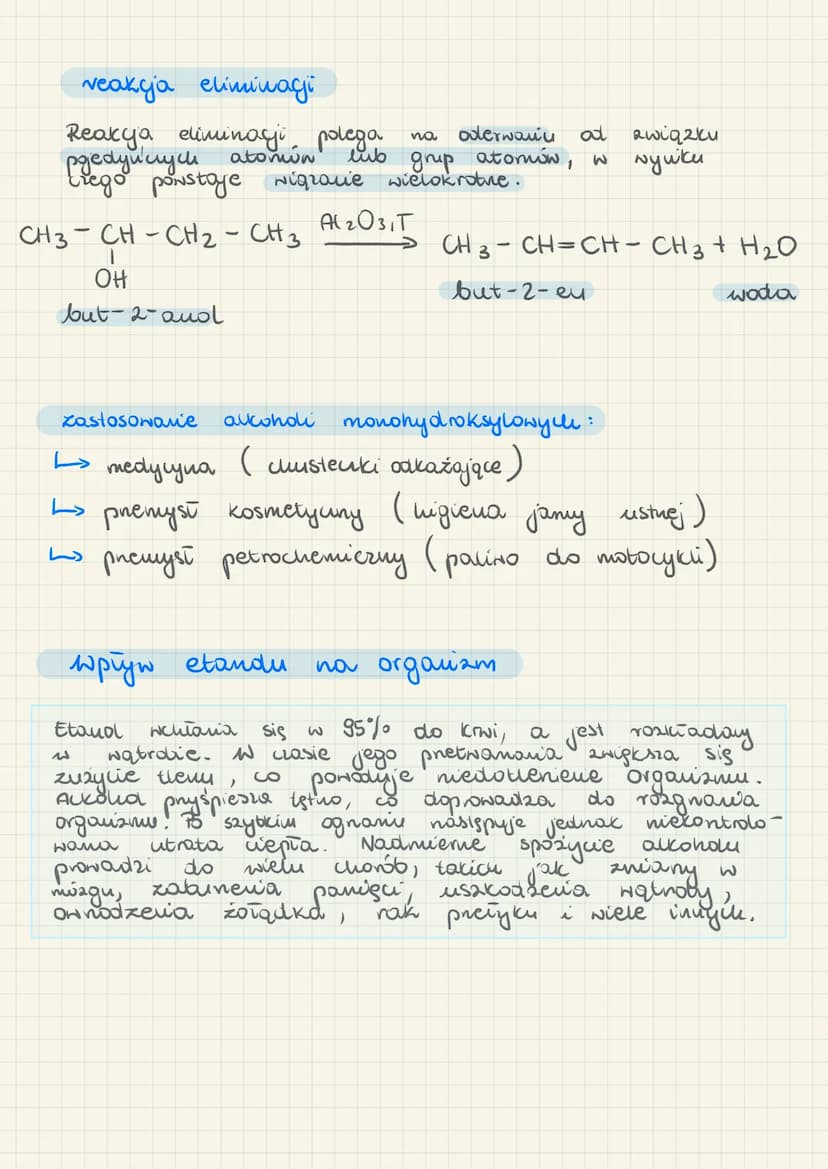 reakcja eliminacji
Reakcja eliminacji polega na oderwaniu od związku
pojedynczych atomów lub grup atomów, w wyniku
czego powstaje wiązanie wielokrotne.
CH3 - CH - CH2 - CH3 Al2O3,T → CH3 - CH=CH - CH3 + H2O
OH
but-2-en woda
but-2-anol
zastosowanie alkoholi monohydroksylowych:
↳ medycyna (chusteczki odkażające)
↳ przemysł kosmetyczny (higiena jamy ustnej)
↳ przemysł petrochemiczny (paliwo do motocykli)
Wpływ etanolu na organizm
Etanol wchłania się w 95% do krwi, a jest rozkładany
w wątrobie. W czasie jego przetwarzania zwiększa się
zużycie tlenu, co powoduje niedotlenienie organizmu.
Alkohol przyśpiesza tętno, co doprowadza do rozgrzania
organizmu. Po szybkim ogrzaniu następuje jednak niekontrolo-
wana utrata ciepła. Nadmierne spożycie alkoholu
prowadzi do wielu chorób, takich jak zmiany w
mózgu, zaburzenia pamięci, uszkodzenia wątroby,
owrzodzenia żołądka, rak przełyku i wiele innych.